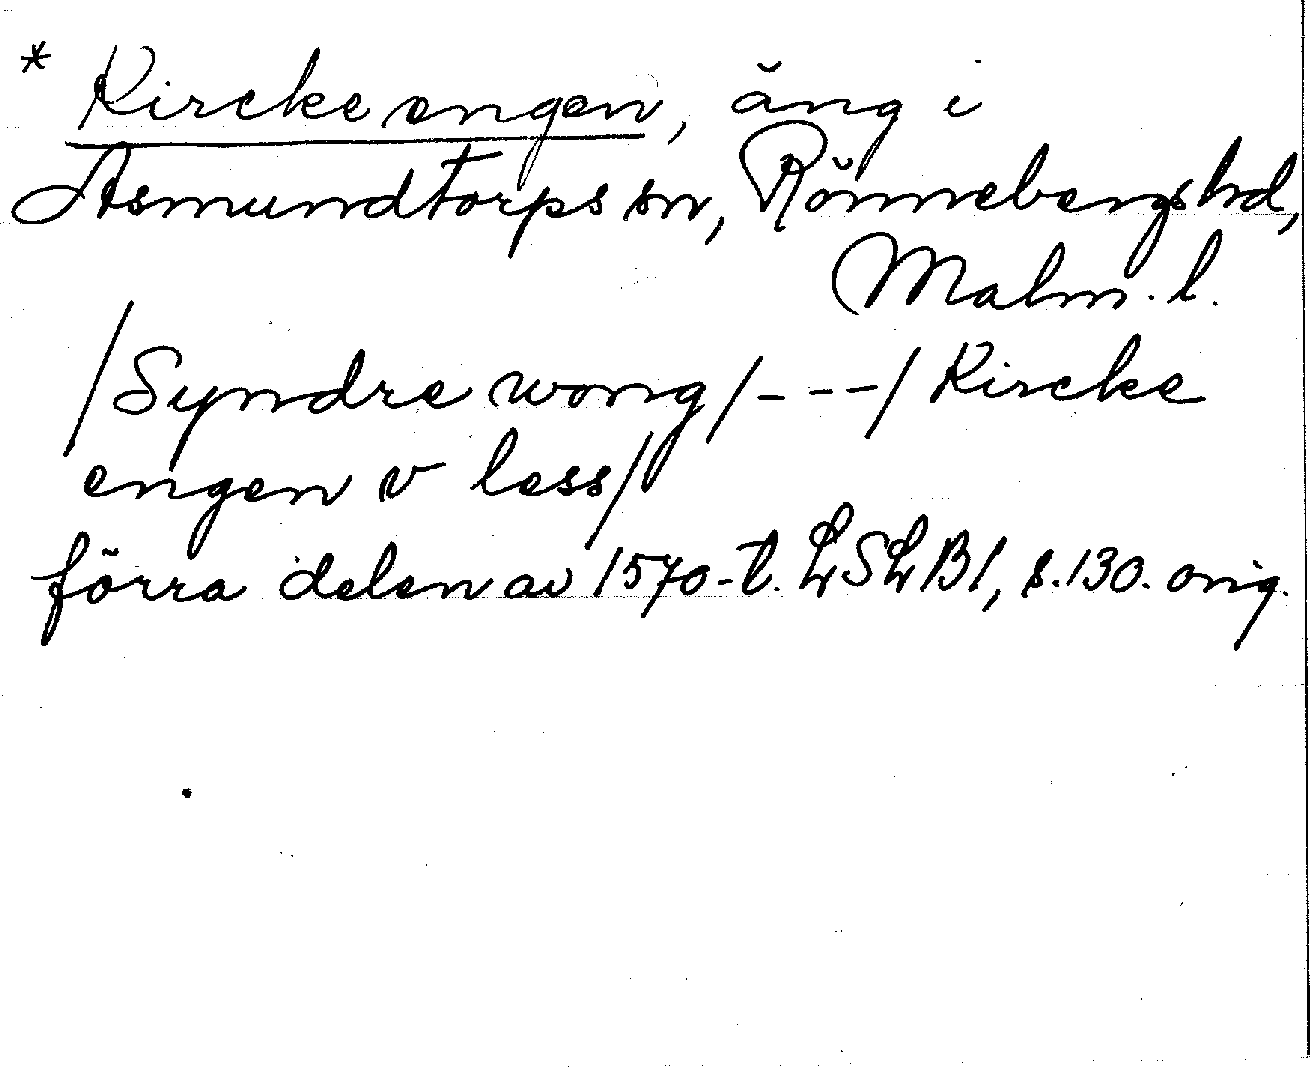 * Kircke engen, äng i
Asmundtorps sn, Rönnebergs hd,
Malm. l.
/Syndre wong/- - -/Kircke
engen v less/
förra delen av 1570-t. LSLB1, s. 130. orig.